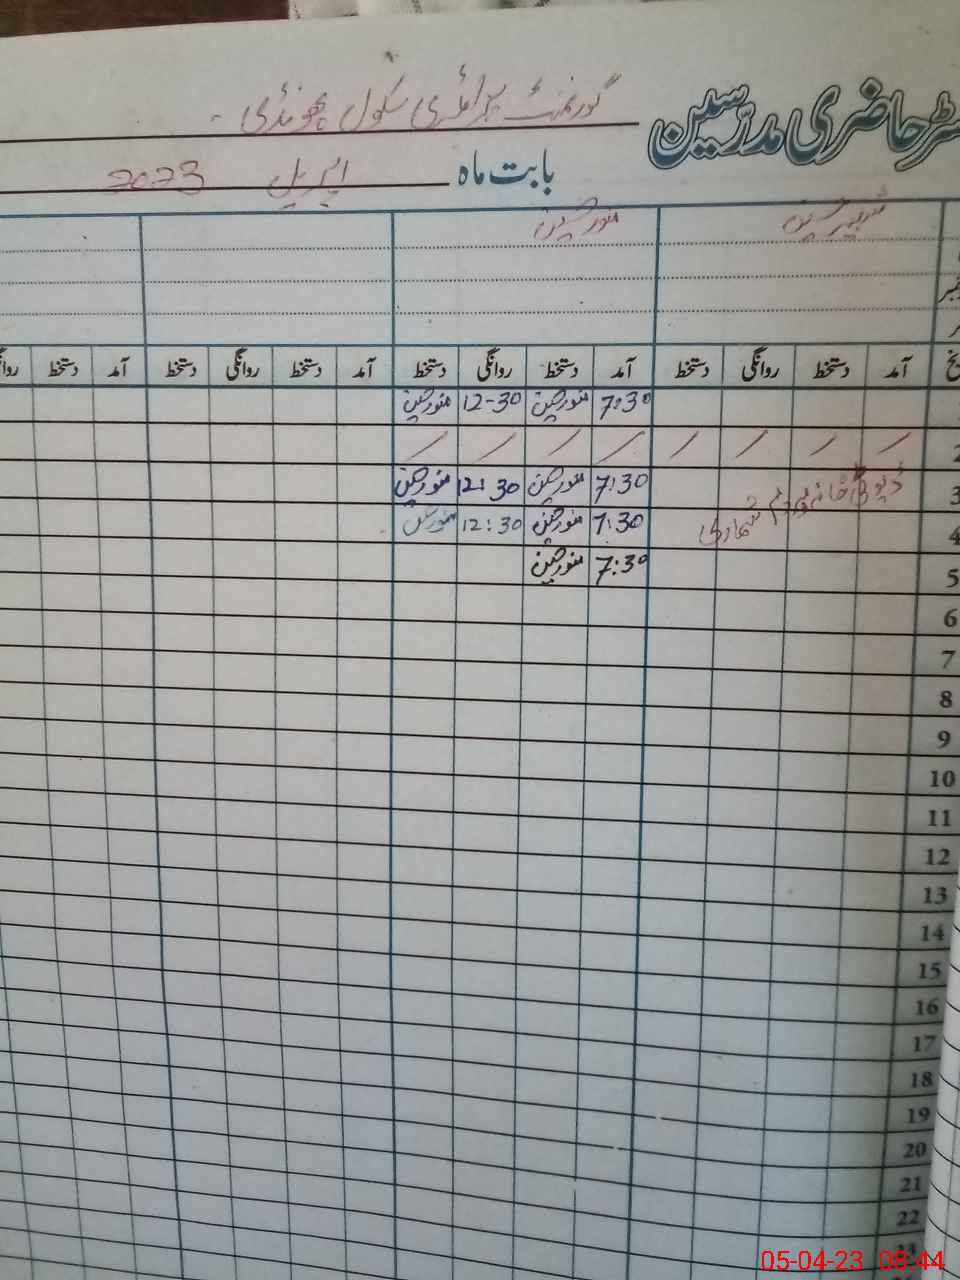 رجسٹر حاضری مدرسین گورنمنٹ پرائمری سکول
بابت ماہ اپریل 2023
شبیر حسین منور حسین
آمد دستخط روانگی دستخط آمد دستخط روانگی دستخط آمد دستخط روانگی دستخط آمد دستخط
7:30 منور حسین 12-30 منور حسین
2 / / / / / / / /
3 ڈیوٹی خانہ و مردم شماری 7:30 منور حسین 12:30 منور حسین
4 7:30 منور حسین 12:30 منور حسین
5 7:30 منور حسین
6
7
8
9
10
11
12
13
14
15
16
17
18
19
20
21
22
23
05-04-23 08:44